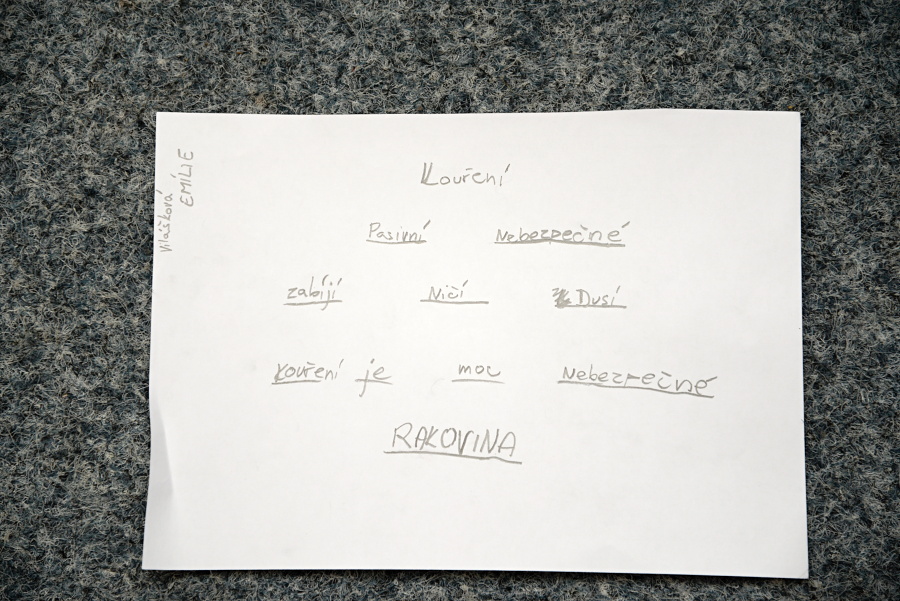 Kouření
Pasivní Nebezpečné
zabíjí Ničí Dusí
Kouření je moc Nebezpečné
RAKOVINA
EMÍLIE